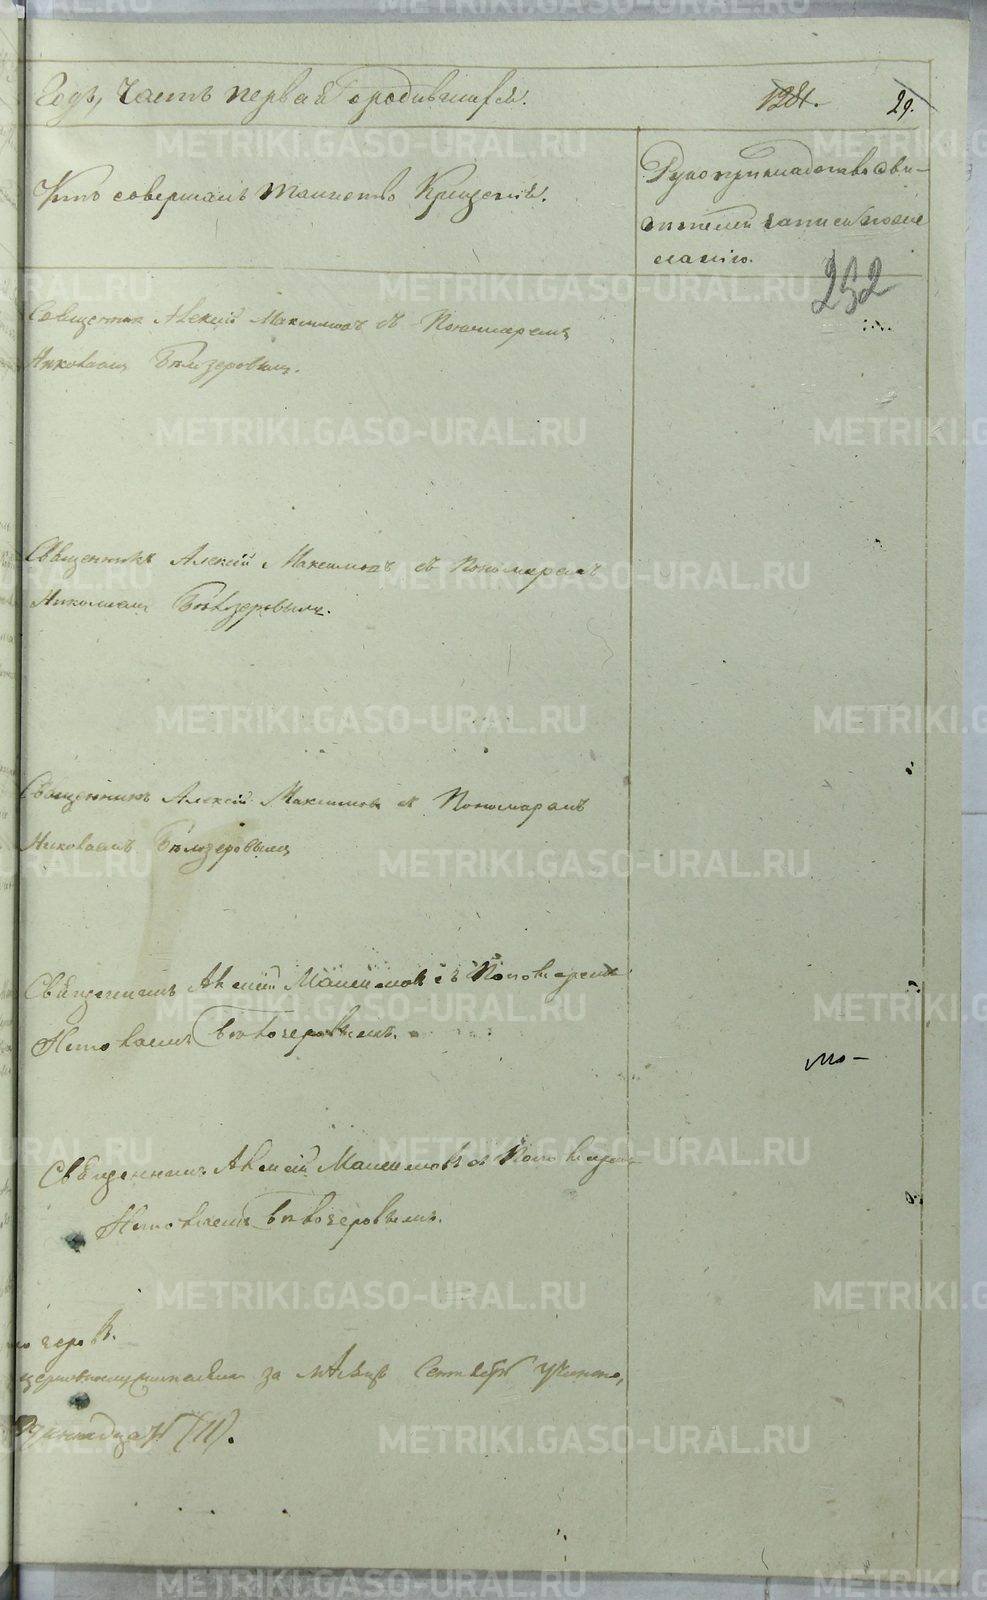 Годъ, Часть первая О родившихся.
29.
Кто совершалъ таинство Крещенія.
Рукоприкладство сви-
дѣтелей записи по же
ланію.
252
Священник Алексій Максимовъ съ Пономаремъ
Николаем Бѣлозеровымъ.
Священникъ Алексій Максимовъ съ Пономаремъ
Николаем Бѣлозеровымъ.
Священникъ Алексій Максимовъ съ Пономаремъ
Николаемъ Бѣлозеровымъ
Священникъ Алексій Максимовъ съ Пономаремъ
Николаемъ Бѣлозеровымъ.
мо-
Священникъ Алексій Максимовъ съ Пономаремъ
Николаемъ Бѣлозеровымъ.
за мѣсяцъ Сентябрь
(11).
METRIKI.GASO-URAL.RU